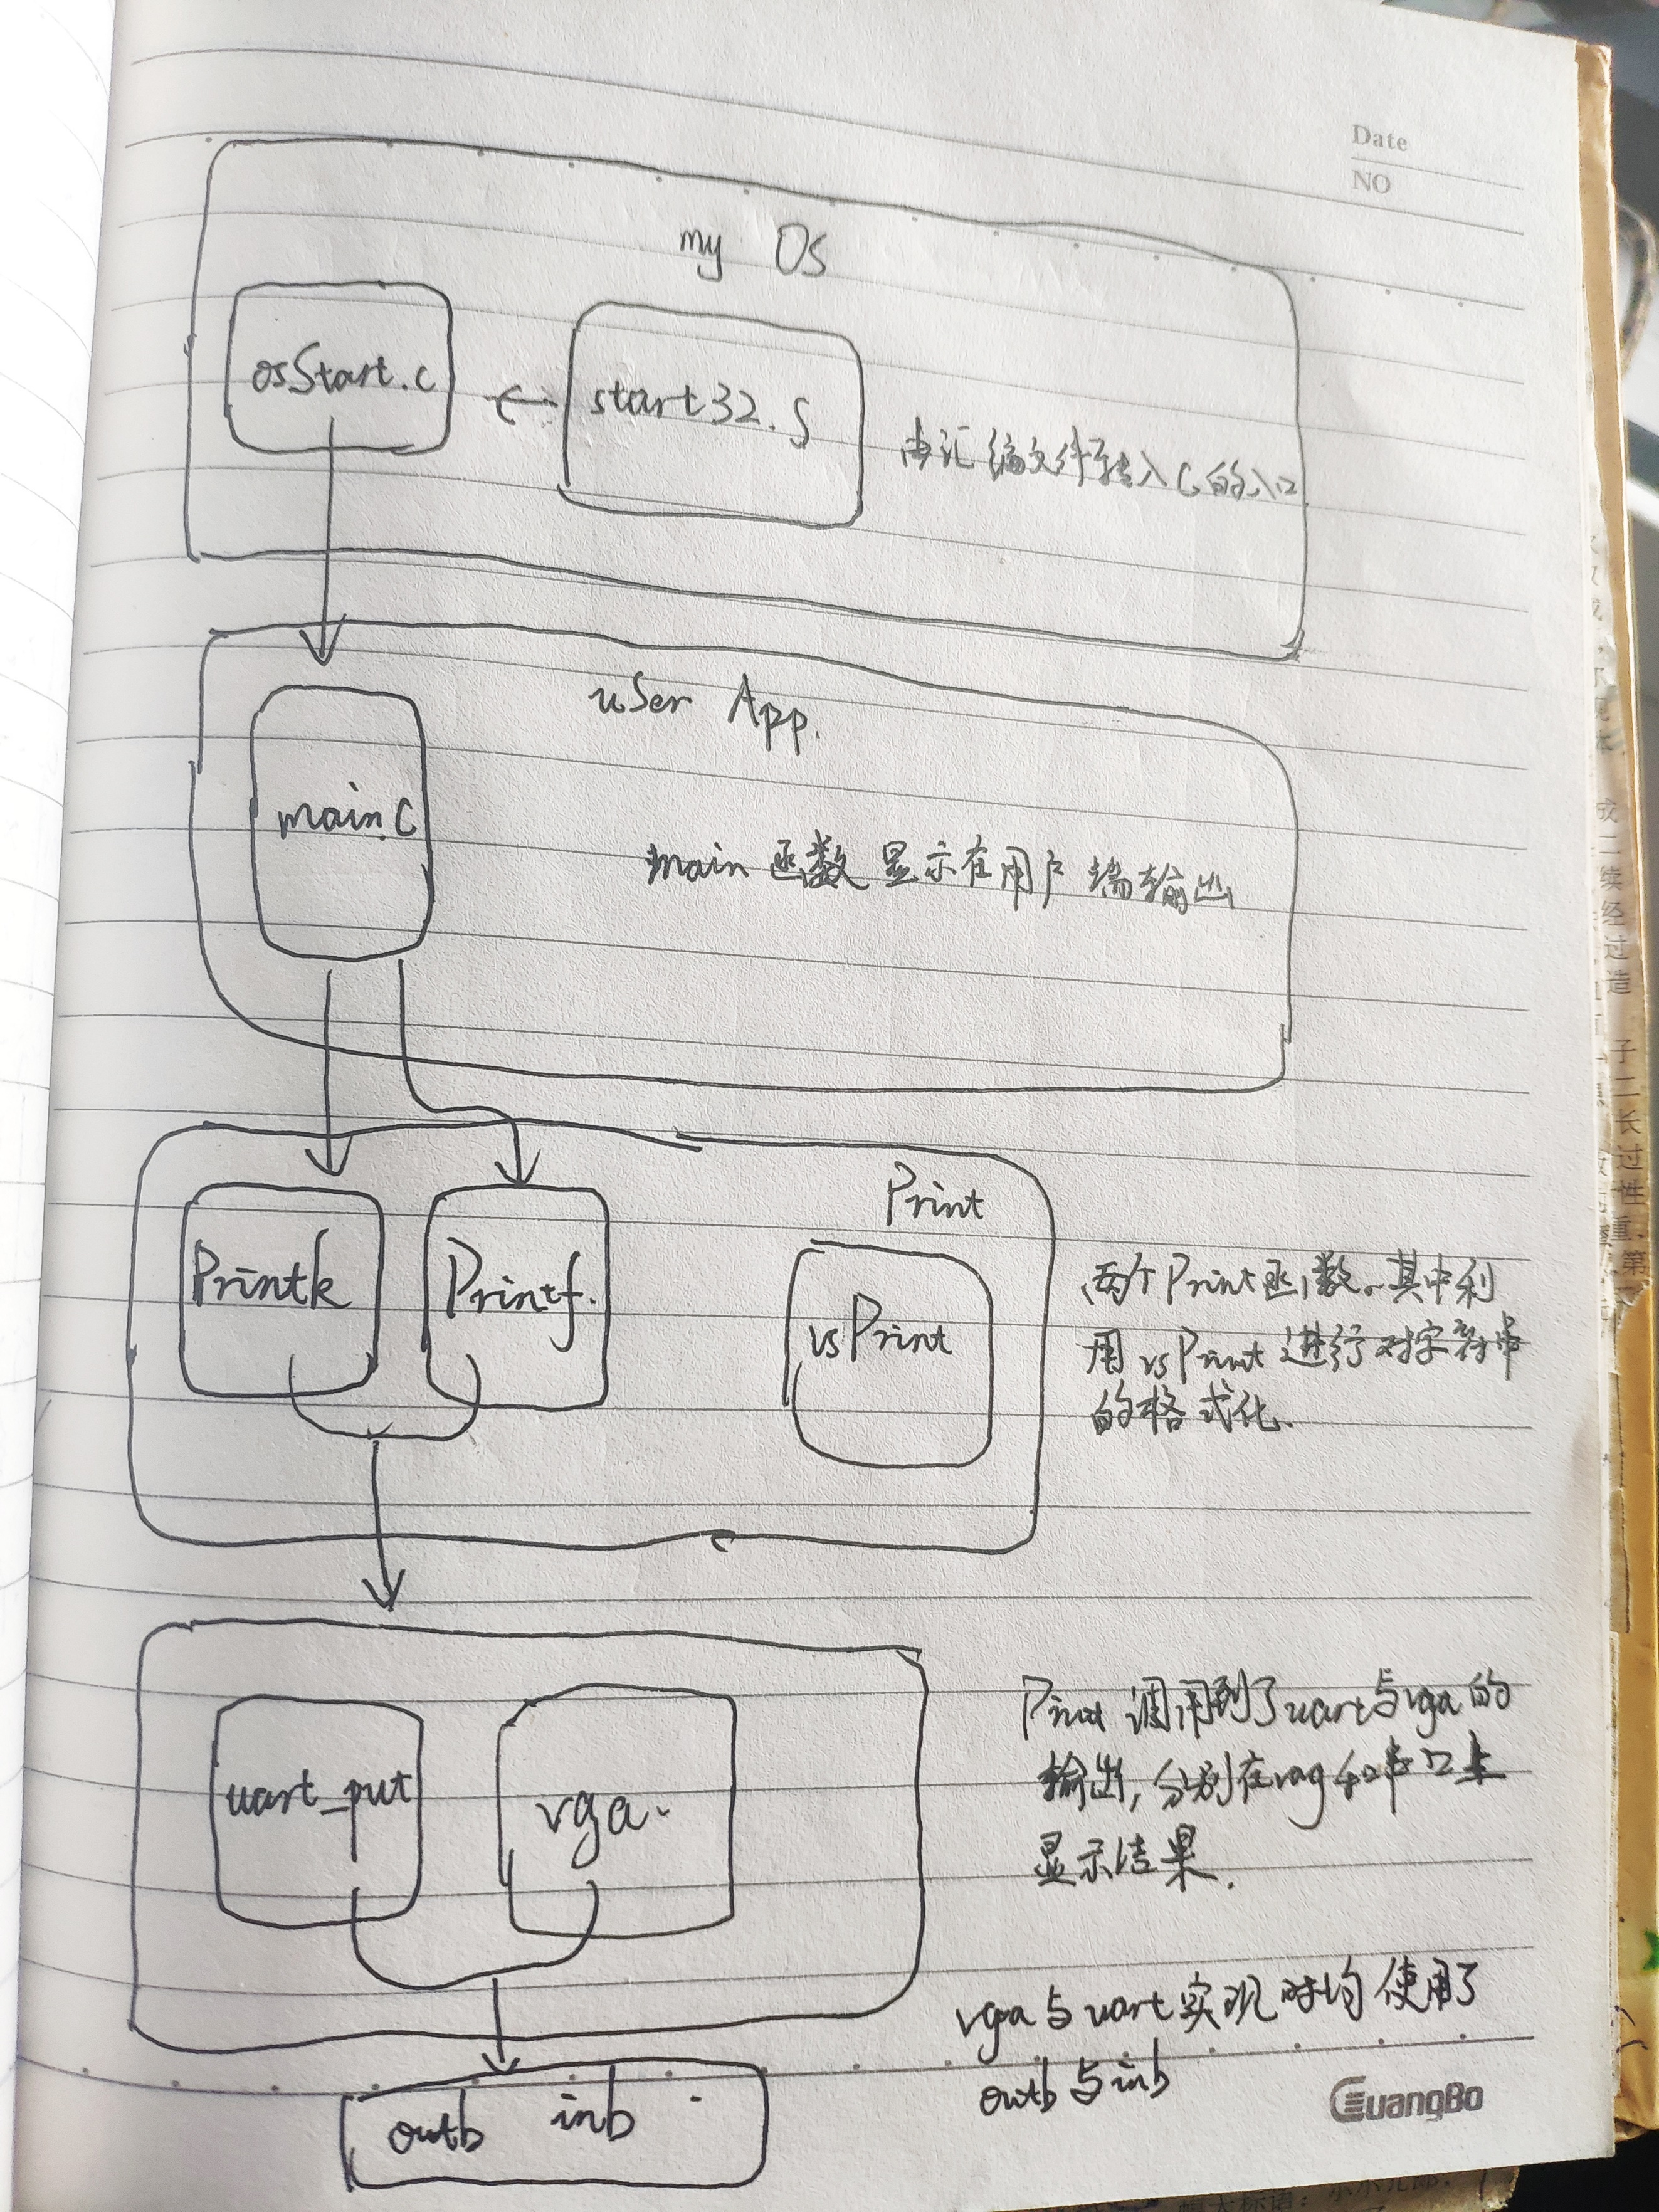 Date
NO
my Os
osStart.c
start32.S
由汇编文件转入C的入口
user App.
main.c
main 函数 显示在用户端输出
Print
Printk
Printf.
vsPrint
两个Print函数。其中利
用vsPrint进行对字符串
的格式化.
uart_put
vga.
Print 调用到了uart与vga的
输出, 分别在vag和串口上
显示结果.
vga与uart实现时均使用了
outb与inb
outb inb
GuangBo